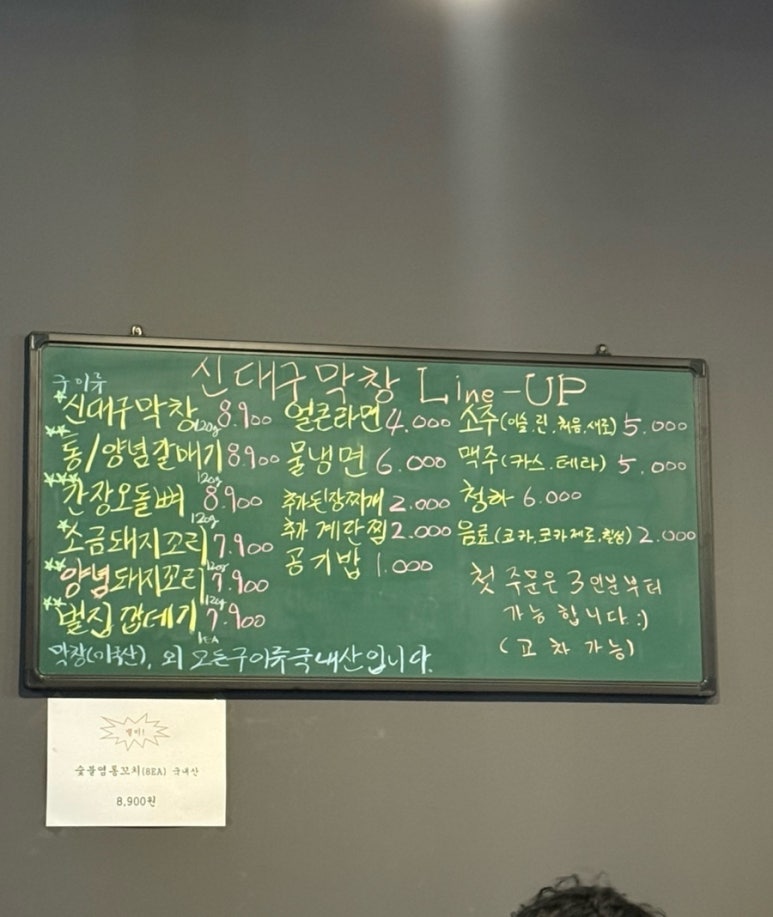 신대구막창 Line-UP
구이류
*신대구막창 120g 8.900
**통/양념갈매기 120g 8.900
***간장오돌뼈 120g 8.900
*소금돼지꼬리 120g 7.900
**양념돼지꼬리 120g 7.900
**벌집껍데기 1EA 7.900
얼큰라면 4.000
물냉면 6.000
추가 된장찌개 2.000
추가 계란찜 2.000
공기밥 1.000
소주(이슬.린.처음.새로) 5.000
맥주(카스.테라) 5.000
청하 6.000
음료(코카,코카제로,칠성) 2.000
첫 주문은 3인분부터
가능합니다:)
(교차가능)
막창(미국산), 외 모든구이류국내산입니다.
별미!
숯불염통꼬치(8EA) 국내산
8,900원